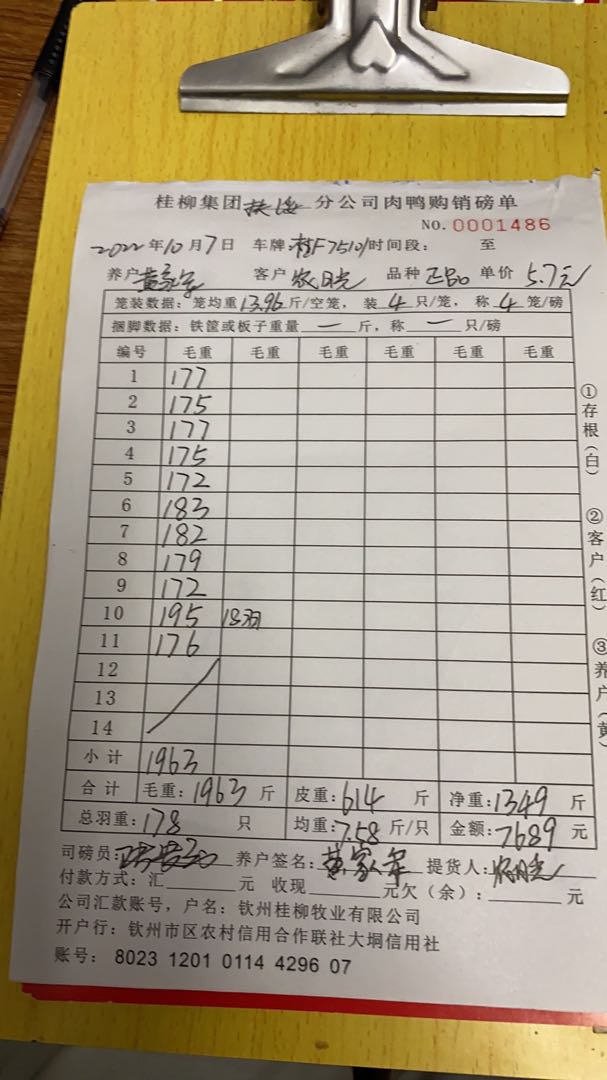 桂柳集团扶绥分公司肉鸭购销磅单
NO. 0001486
2022年10月7日 车牌:桂F7510 时间段: 至
养户 客户 农日光 品种 正Bo 单价 5.7元
笼装数据:笼均重13.96斤/空笼,装4只/笼,称4笼/磅
捆脚数据:铁筐或板子重量—斤,称—只/磅
编号 毛重 毛重 毛重 毛重 毛重 毛重
1 177
2 175
3 177
4 175
5 172
6 183
7 182
8 179
9 172
10 195 18羽
11 176
12
13
14
小计 1963
合计 毛重:1963斤 皮重:614斤 净重:1349斤
总羽重:178只 均重:7.58斤/只 金额:7689元
司磅员: 养户签名: 提货人:
付款方式:汇 元 收现 元欠(余): 元
公司汇款账号,户名:钦州桂柳牧业有限公司
开户行:钦州市区农村信用合作联社大垌信用社
账号: 8023 1201 0114 4296 07
①存根(白)
②客户(红)
③养户(黄